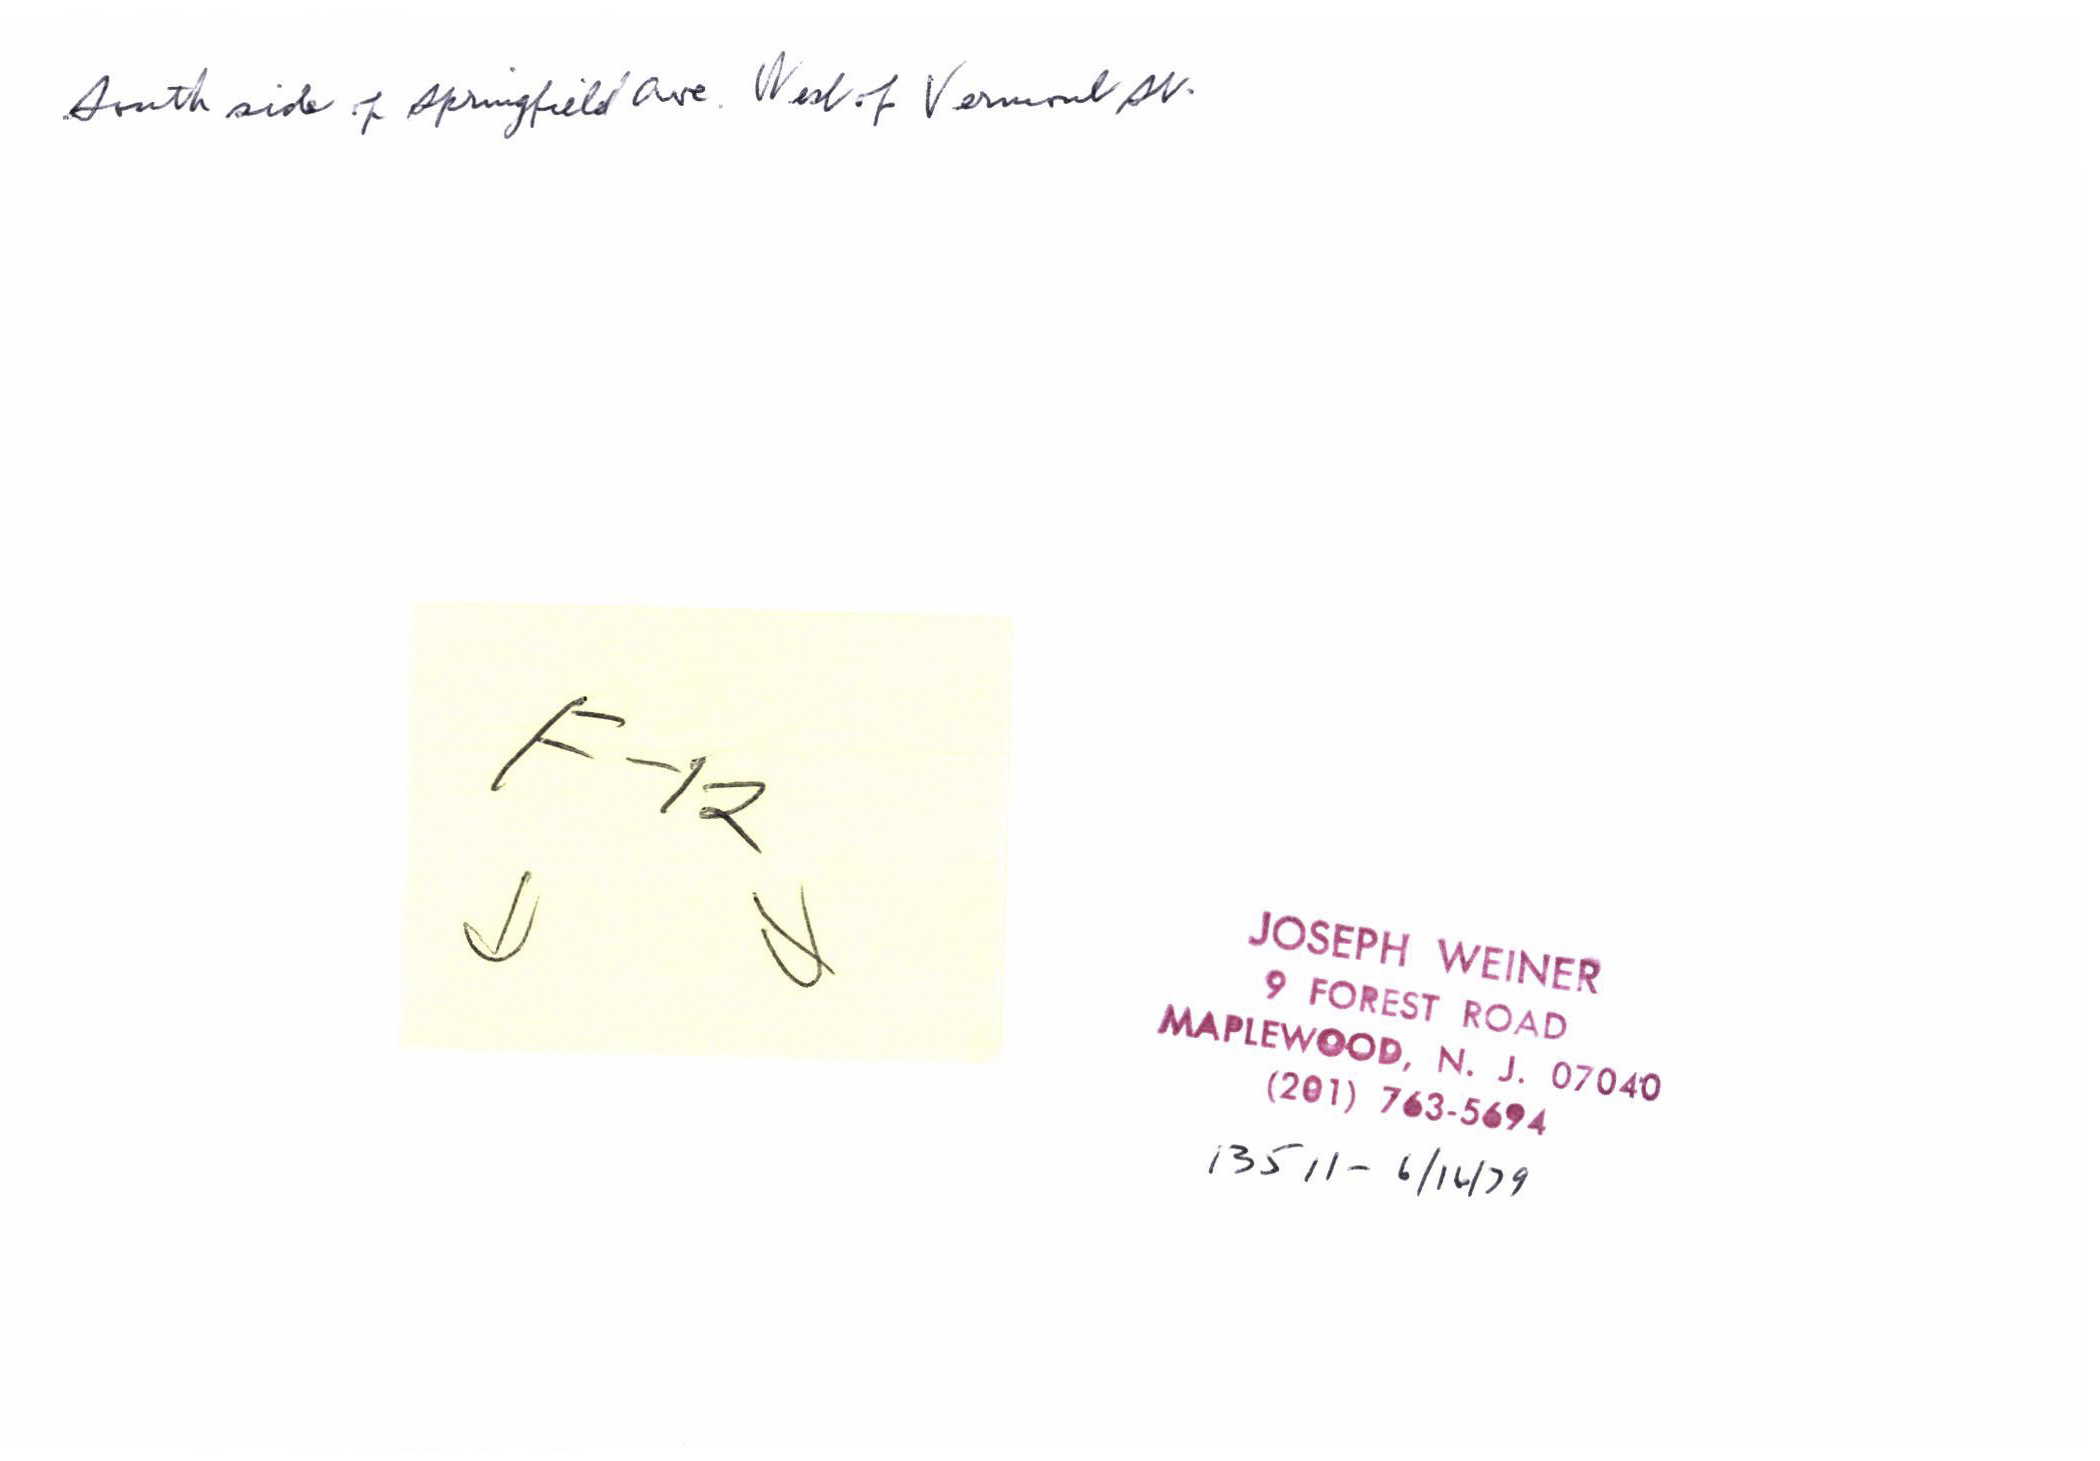 South side of Springfield Ave. West of Vermont St.
F-12
JOSEPH WEINER
9 FOREST ROAD
MAPLEWOOD, N. J. 07040
(201) 763-5694
13511- 6/16/79